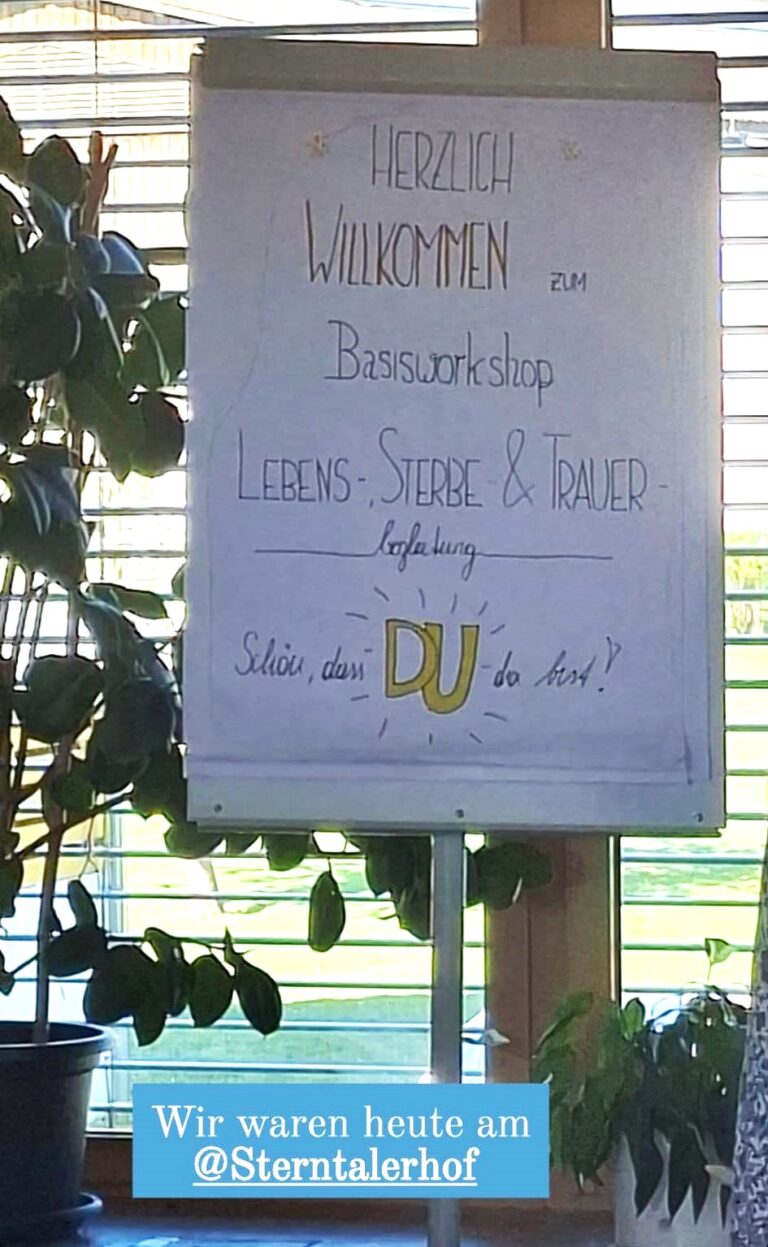 HERZLICH
WILLKOMMEN ZUM
Basisworkshop
LEBENS-, STERBE- & TRAUER-
begleitung
Schön, dass DU da bist!
Wir waren heute am
@Sterntalerhof